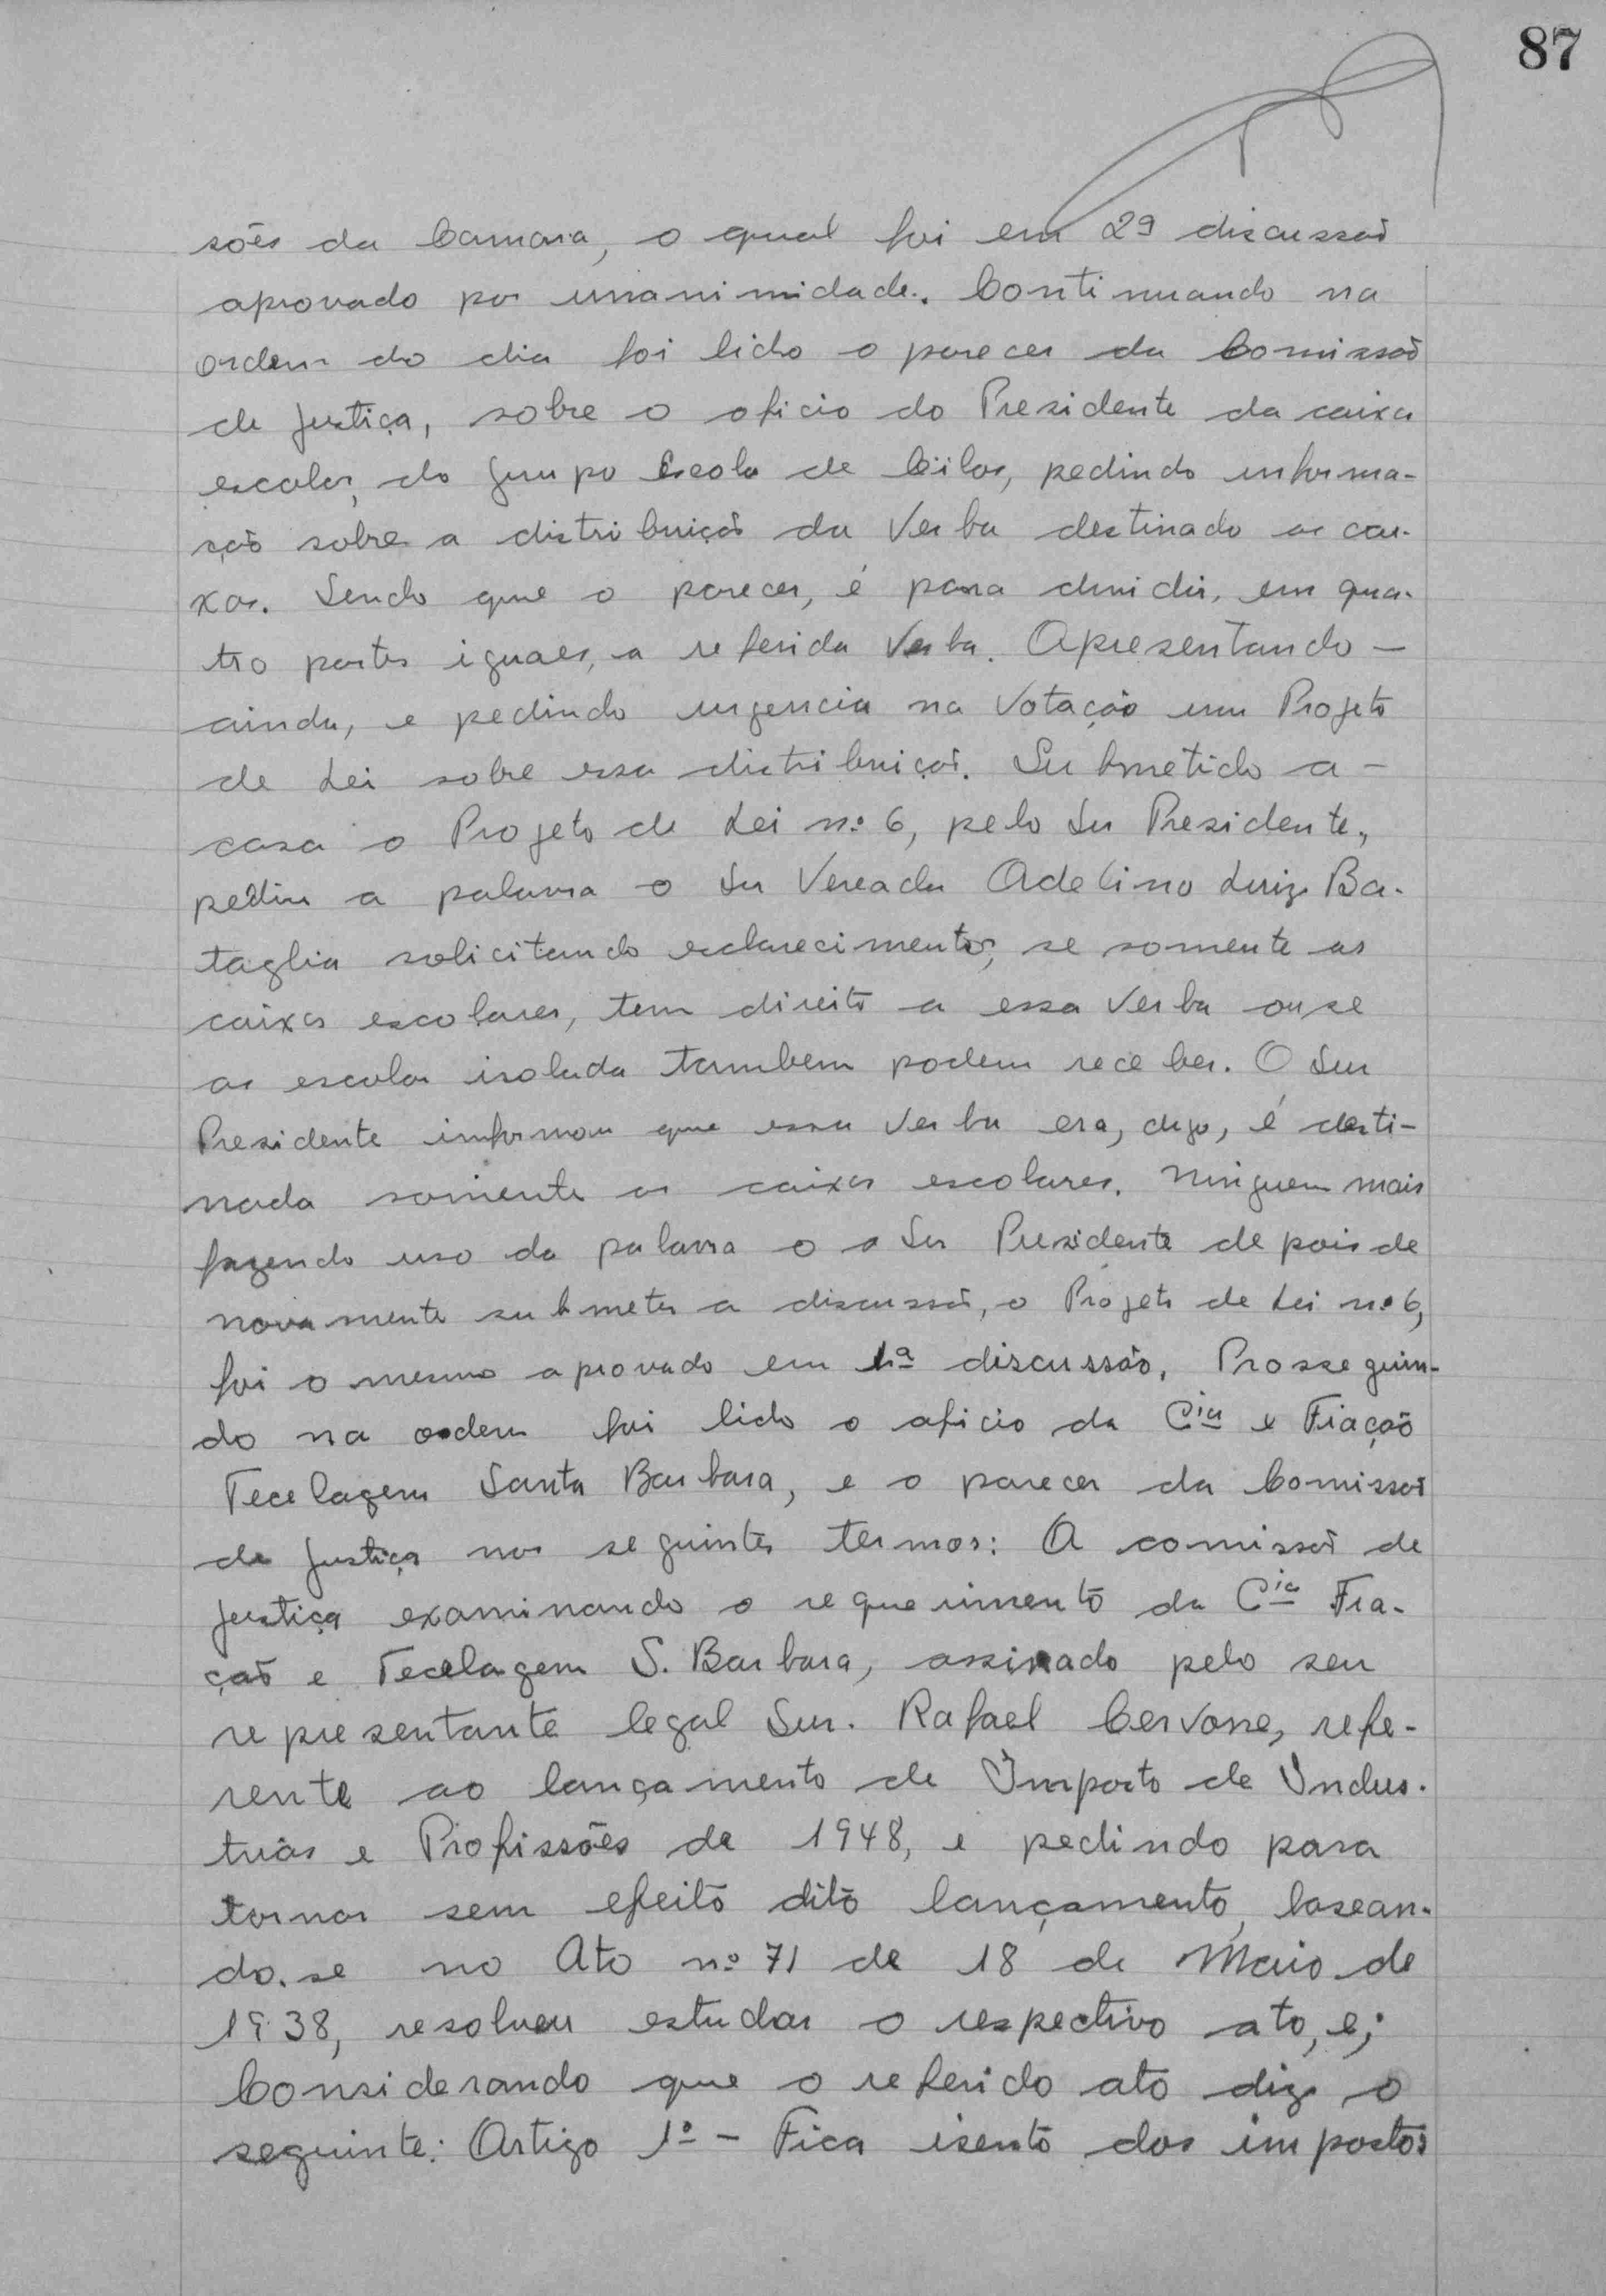 87
sões da Camara, o qual foi em 2ª discussão
aprovado por unanimidade. Continuando na
ordem do dia foi lido o parecer da Comissão
de Justiça, sobre o oficio do Presidente da caixa
escolar, do Grupo Escola de Cillos, pedindo informa-
ção sobre a distribuição da Verba destinado as cai-
xas. Sendo que o parecer, é para dividir, em qua-
tro partes iguaes, a referida Verba. Apresentando -
ainda, e pedindo urgencia na Votação um Projeto
de Lei sobre essa distribuição. Submetido a -
casa o Projeto de Lei nº 6, pelo Snr Presidente,
pediu a palavra o Snr Vereador Adelino Luiz Ba-
taglia solicitando esclarecimentos, se somente as
caixas escolares, tem direito a essa Verba ou se
as escolas isolada tambem podem receber. O Snr
Presidente informou que essa Verba era, digo, é desti-
nada somente as caixas escolares. Ninguem mais
fazendo uso da palavra o o Snr Presidente depois de
novamente submeter a discussão, o Projeto de Lei nº 6,
foi o mesmo aprovado em 1ª discussão. Prosseguin-
do na ordem foi lido o oficio da Cia e Fiação
Tecelagem Santa Barbara, e o parecer da Comissão
de Justiça nos seguintes termos: A comissão de
Justiça examinando o requerimento da Cia Fia-
ção e Tecelagem S. Barbara, assinado pelo seu
representante legal Snr. Rafael Cervone, refe-
rente ao lançamento de Imposto de Indus-
trias e Profissões de 1948, e pedindo para
tornar sem efeito dito lançamento, basean-
do-se no Ato nº 71 de 18 de Maio de
1938, resolveu estudar o respectivo ato, e;
Considerando que o referido ato diz o
seguinte: Artigo 1º - Fica isento dos impostos